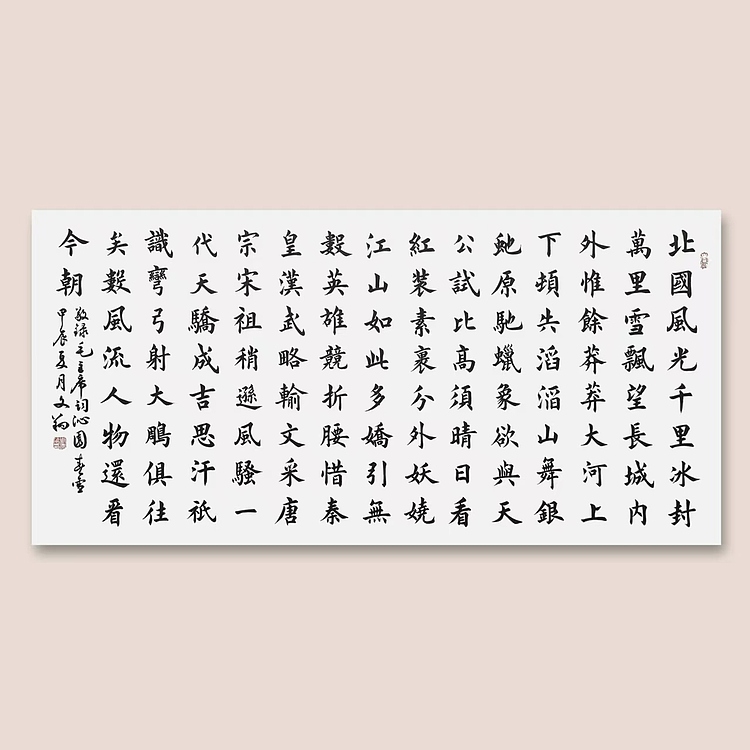 北國風光千里冰封
萬里雪飄望長城内
外惟餘莽莽大河上
下頓失滔滔山舞銀
虵原馳蠟象欲與天
公試比高須晴日看
紅裝素裹分外妖嬈
江山如此多嬌引無
數英雄競折腰惜秦
皇漢武略輸文采唐
宗宋祖稍遜風騷一
代天驕成吉思汗祇
識彎弓射大鵰俱往
矣數風流人物還看
今朝
敬録毛主席詞沁園春雪
甲辰夏月文